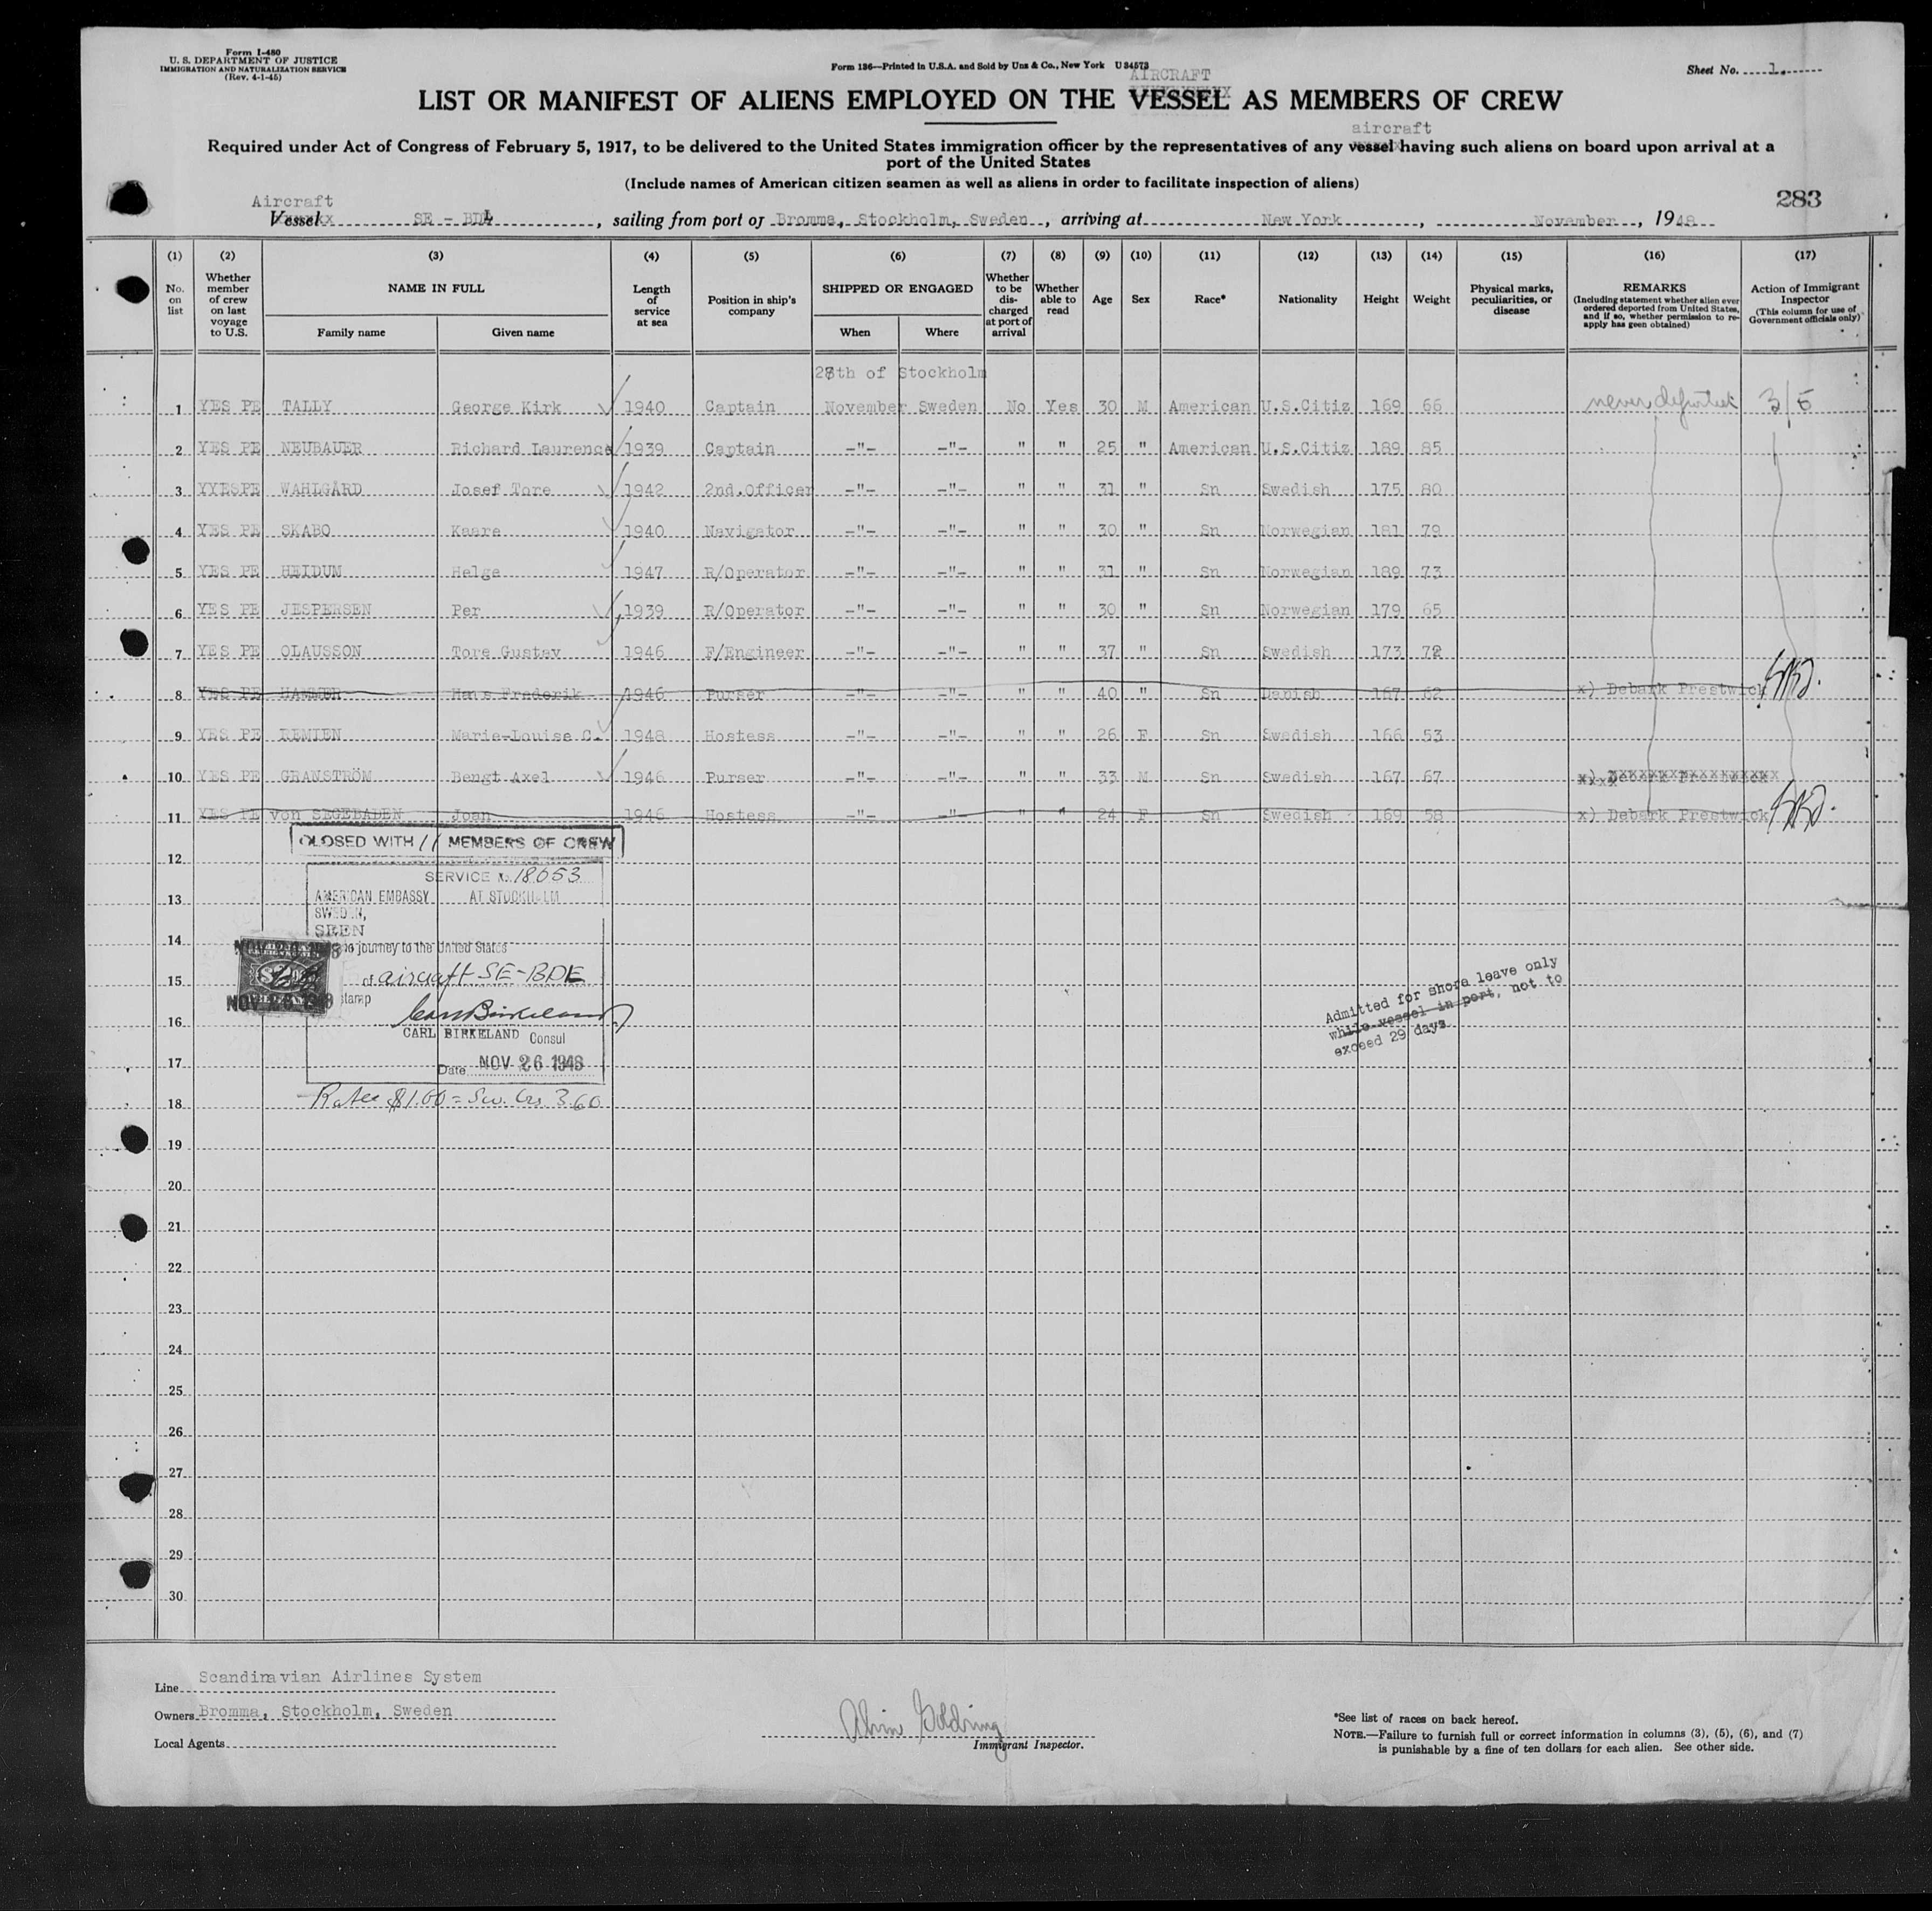 Form I-480
U. S. DEPARTMENT OF JUSTICE
IMMIGRATION AND NATURALIZATION SERVICE
(Rev. 4-1-45)
Form 136—Printed in U.S.A. and Sold by Unz & Co., New York U 34573
Sheet No. 1.
AIRCRAFT
LIST OR MANIFEST OF ALIENS EMPLOYED ON THE VESSEL AS MEMBERS OF CREW
aircraft
Required under Act of Congress of February 5, 1917, to be delivered to the United States immigration officer by the representatives of any vessel having such aliens on board upon arrival at a
port of the United States
(Include names of American citizen seamen as well as aliens in order to facilitate inspection of aliens)
283
Aircraft
Vessel SE - BD, sailing from port of Bromma, Stockholm, Sweden, arriving at New York, November, 1948
(1) (2) (3) (4) (5) (6) (7) (8) (9) (10) (11) (12) (13) (14) (15) (16) (17)
No. on list
Whether member of crew on last voyage to U.S.
NAME IN FULL
Family name Given name
Length of service at sea
Position in ship's company
SHIPPED OR ENGAGED
When Where
Whether to be discharged at port of arrival
Whether able to read
Age Sex Race* Nationality Height Weight
Physical marks, peculiarities, or disease
REMARKS
(Including statement whether alien ever ordered deported from United States, and if so, whether permission to re-apply has geen obtained)
Action of Immigrant Inspector
(This column for use of Government officials only)
th of Stockholm
1 YES PE TALLY George Kirk 1940 Captain November Sweden No Yes 30 M American U.S.Citiz 169 66 never deported 3/5
2 YES PE NEUBAUER Richard Laurence 1939 Captain -"- -"- " " 25 " American U.S.Citiz 189 85
3 YYESPE WAHLGÅRD Josef Tore 1942 2nd.Officer -"- -"- " " 31 " Sn Swedish 175 80
4 YES PE SKABO Kaare 1940 Navigator -"- -"- " " 30 " Sn Norwegian 181 79
5 YES PE HEIDUM Helge 1947 R/Operator -"- -"- " " 31 " Sn Norwegian 189 73
6 YES PE JESPERSEN Per 1939 R/Operator -"- -"- " " 30 " Sn Norwegian 179 65
7 YES PE OLAUSSON Tore Gustav 1946 F/Engineer -"- -"- " " 37 " Sn Swedish 173 72
8 YES PE HAMMER Hans Frederik 1946 Purser -"- -"- " " 40 " Sn Danish 167 62 x) Debark Prestwick
9 YES PE REMIEN Marie-Louise C. 1948 Hostess -"- -"- " " 26 F Sn Swedish 166 53
10 YES PE GRANSTRÖM Bengt Axel 1946 Purser -"- -"- " " 33 M Sn Swedish 167 67 x) Debark Prestwick
11 YES PE von SEGEBADEN Joan 1946 Hostess -"- -"- " " 24 F Sn Swedish 169 58 x) Debark Prestwick
CLOSED WITH 11 MEMBERS OF CREW
12
SERVICE No. 18653
13
AMERICAN EMBASSY AT STOCKHOLM
SWEDEN,
SEEN
14
NOV 26 1948 journey to the United States
15
of aircraft SE-BDE
NOV 26 1948 stamp
16
CARL BIRKELAND Consul
17
Date NOV 26 1948
18
Rates $1.00 = Sw. Crs 3.60
Admitted for shore leave only
while vessel in port, not to
exceed 29 days
19
20
21
22
23
24
25
26
27
28
29
30
Line Scandinavian Airlines System
Owners Bromma, Stockholm, Sweden
Local Agents
Immigrant Inspector.
*See list of races on back hereof.
NOTE.—Failure to furnish full or correct information in columns (3), (5), (6), and (7)
is punishable by a fine of ten dollars for each alien. See other side.